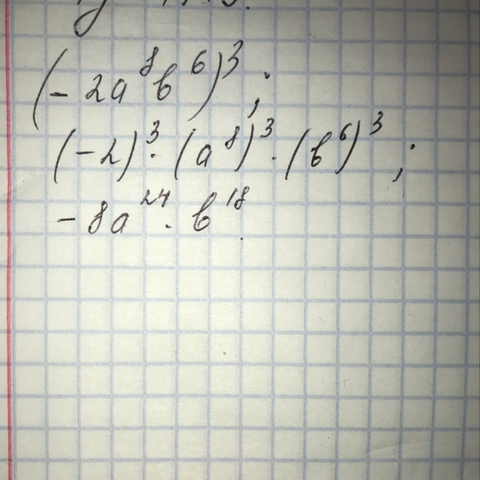 (-2a⁸b⁶)³;
(-2)³·(a⁸)³·(b⁶)³;
-8a²⁴·b¹⁸